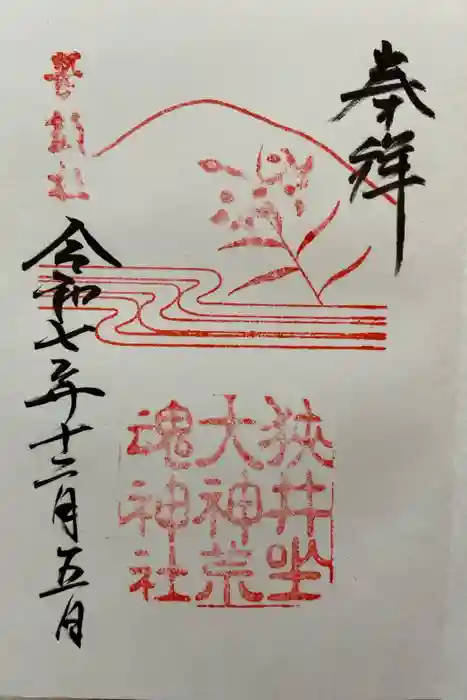 奉拝
狭井坐
大神荒
魂神社
華鎮社
令和七年十二月五日